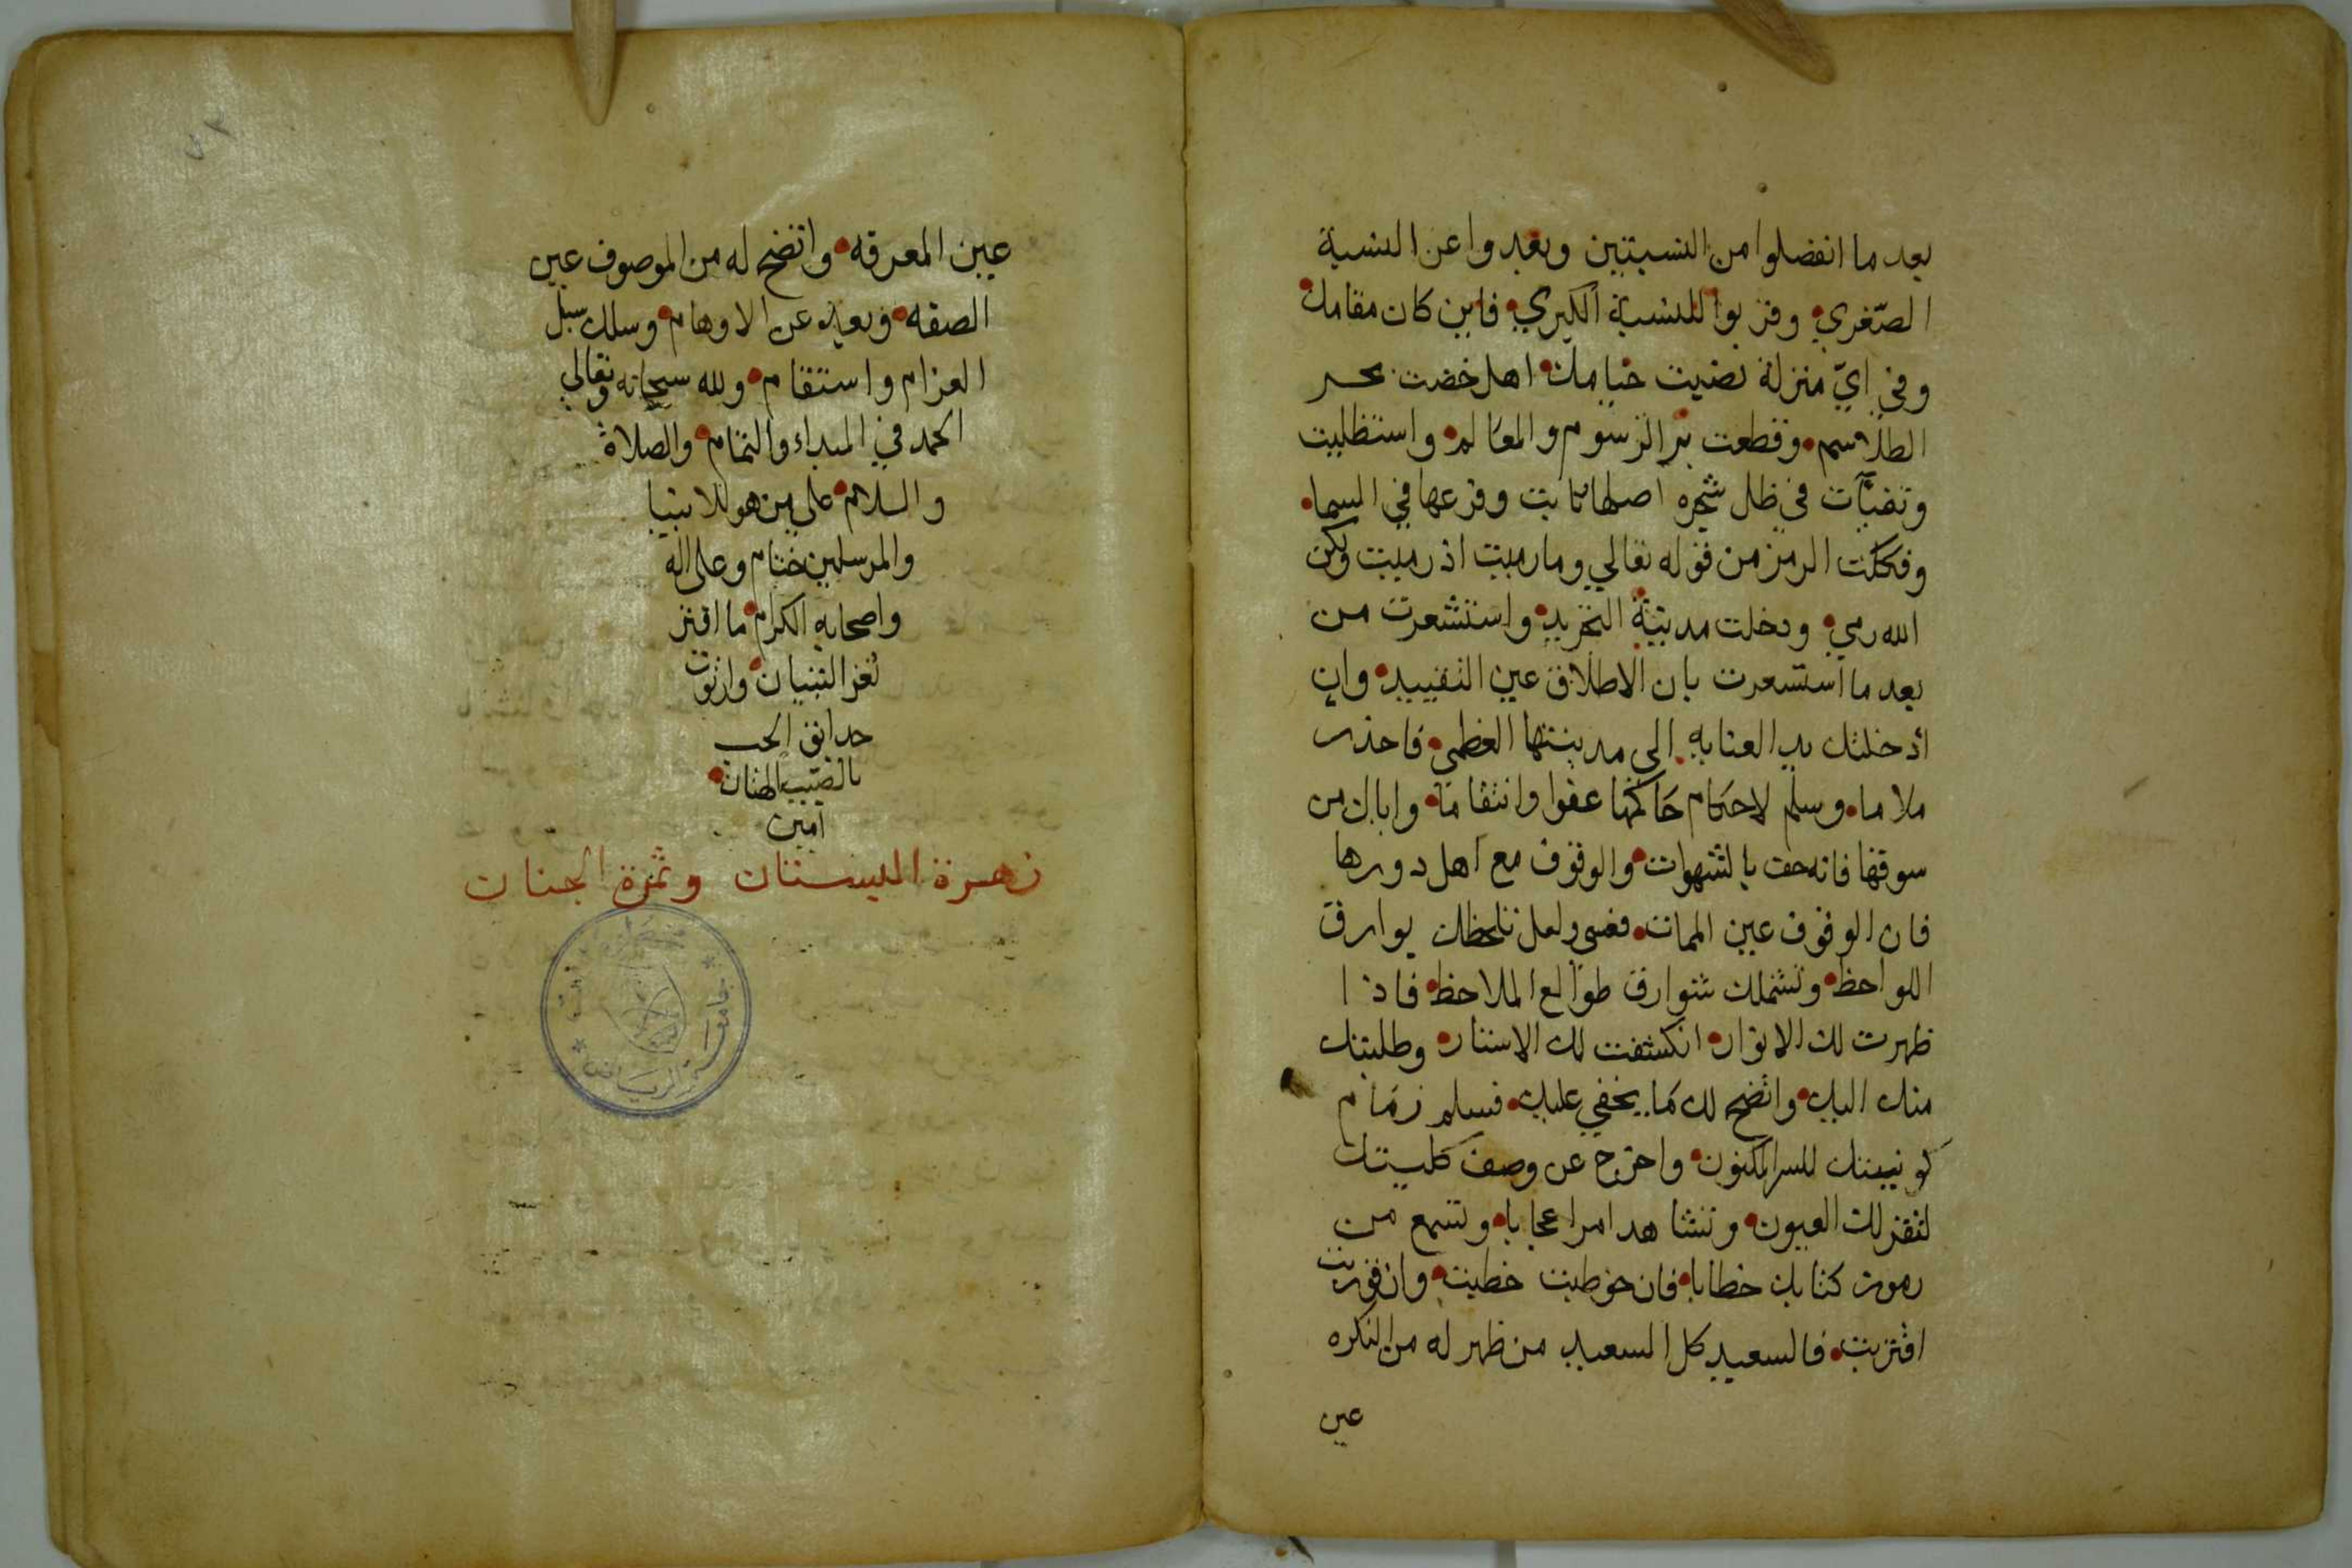 بعد ما انفصلوا من النسبتين وبعدوا عن النسبة
الصّغري وقربوا للنسبة الكبري فاين كان مقامك
وفي ايّ منزلة نصبت خيامك اهل خضت بحر
الطلاسم وقطعت بر الرسوم والمعالم واستظليت
وتفيّآت في ظل شجره اصلها ثابت وفرعها في السما
وفككت الرمز من قوله تعالي وما رميت اذ رميت ولكن
الله رمي ودخلت مدينة التجريد واستشعرت من
بعد ما استشعرت بان الاطلاق عين التقييد وان
ادخلتك يد العنايه الي مدينتها العظمي فاحذر
ملاما وسلم لاحكام حاكمها عفوا وانتقاما واياك من
سوقها فانه حفت بالشهوات والوقوف مع اهل دورها
فان الوقوف عين الممات فعسي ولعل تلحظك بوارق
اللواحظ وتشملك شوارق طوالع الملاحظ فاذا
ظهرت لك الانوار انكشفت لك الاستار وطلبتك
منك اليك واتضح لك ما يخفي عليك فسلم زمام
كونيتك للسر المكنون واخرج عن وصف كليتك
لتقر لك العيون وتشاهد امرا عجابا وتسمع من
رموز كتابك خطابا فان خوطبت خطبت وان قربت
اقتربت فالسعيد كل السعيد من ظهر له من النكره
عين
عين المعرفه واتضح له من الموصوف عين
الصفه وبعد عن الاوهام وسلك سبل
العزام واستقام ولله سبحانه وتعالي
الحمد في المبداء والتمام والصلاة
والسلام علي من هو للانبيا
والمرسلين ختام وعلي اله
واصحابه الكرام ما افتر
ثغر التبيان وارتوت
حدائق الحب
بالصيب الهتان
امين
زهرة البستان وثمرة الجنان
جامعة الرياض